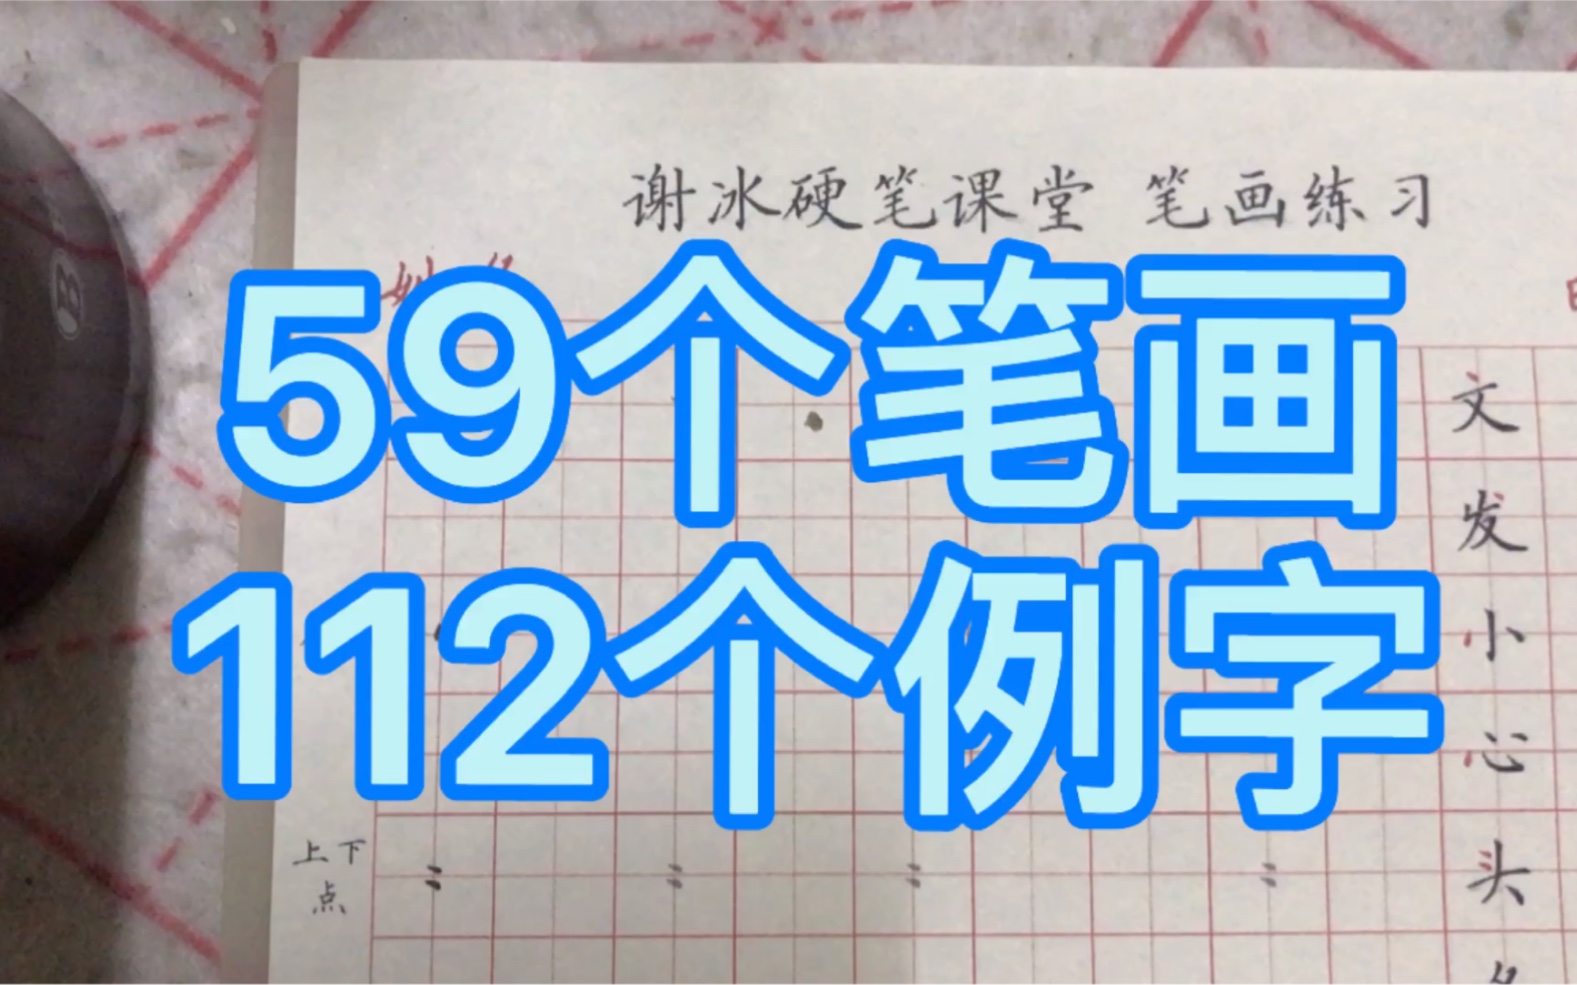 谢冰硬笔课堂 笔画练习
59个笔画
112个例字
文
发
小
心
上下
点
头